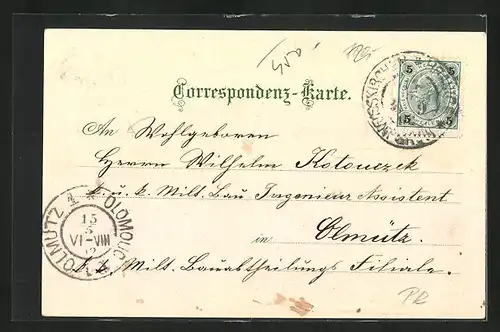 450
Correspondenz-Karte.
5 5
5 5
An Wohlgeboren
Herrn Wilhelm Kotouczek
k. u. k. Milt. Bau Ingenieur Assistent
in Olmütz.
k. k. Milt. Bauabtheilungs Filiale.
OLMÜTZ 1 * OLOMOUC 1
15
5
VI-VIII
02
PR